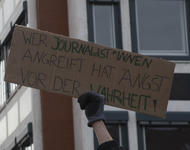 WER JOURNALIST*INNEN
ANGREIFT HAT ANGST
VOR DER WAHRHEIT!